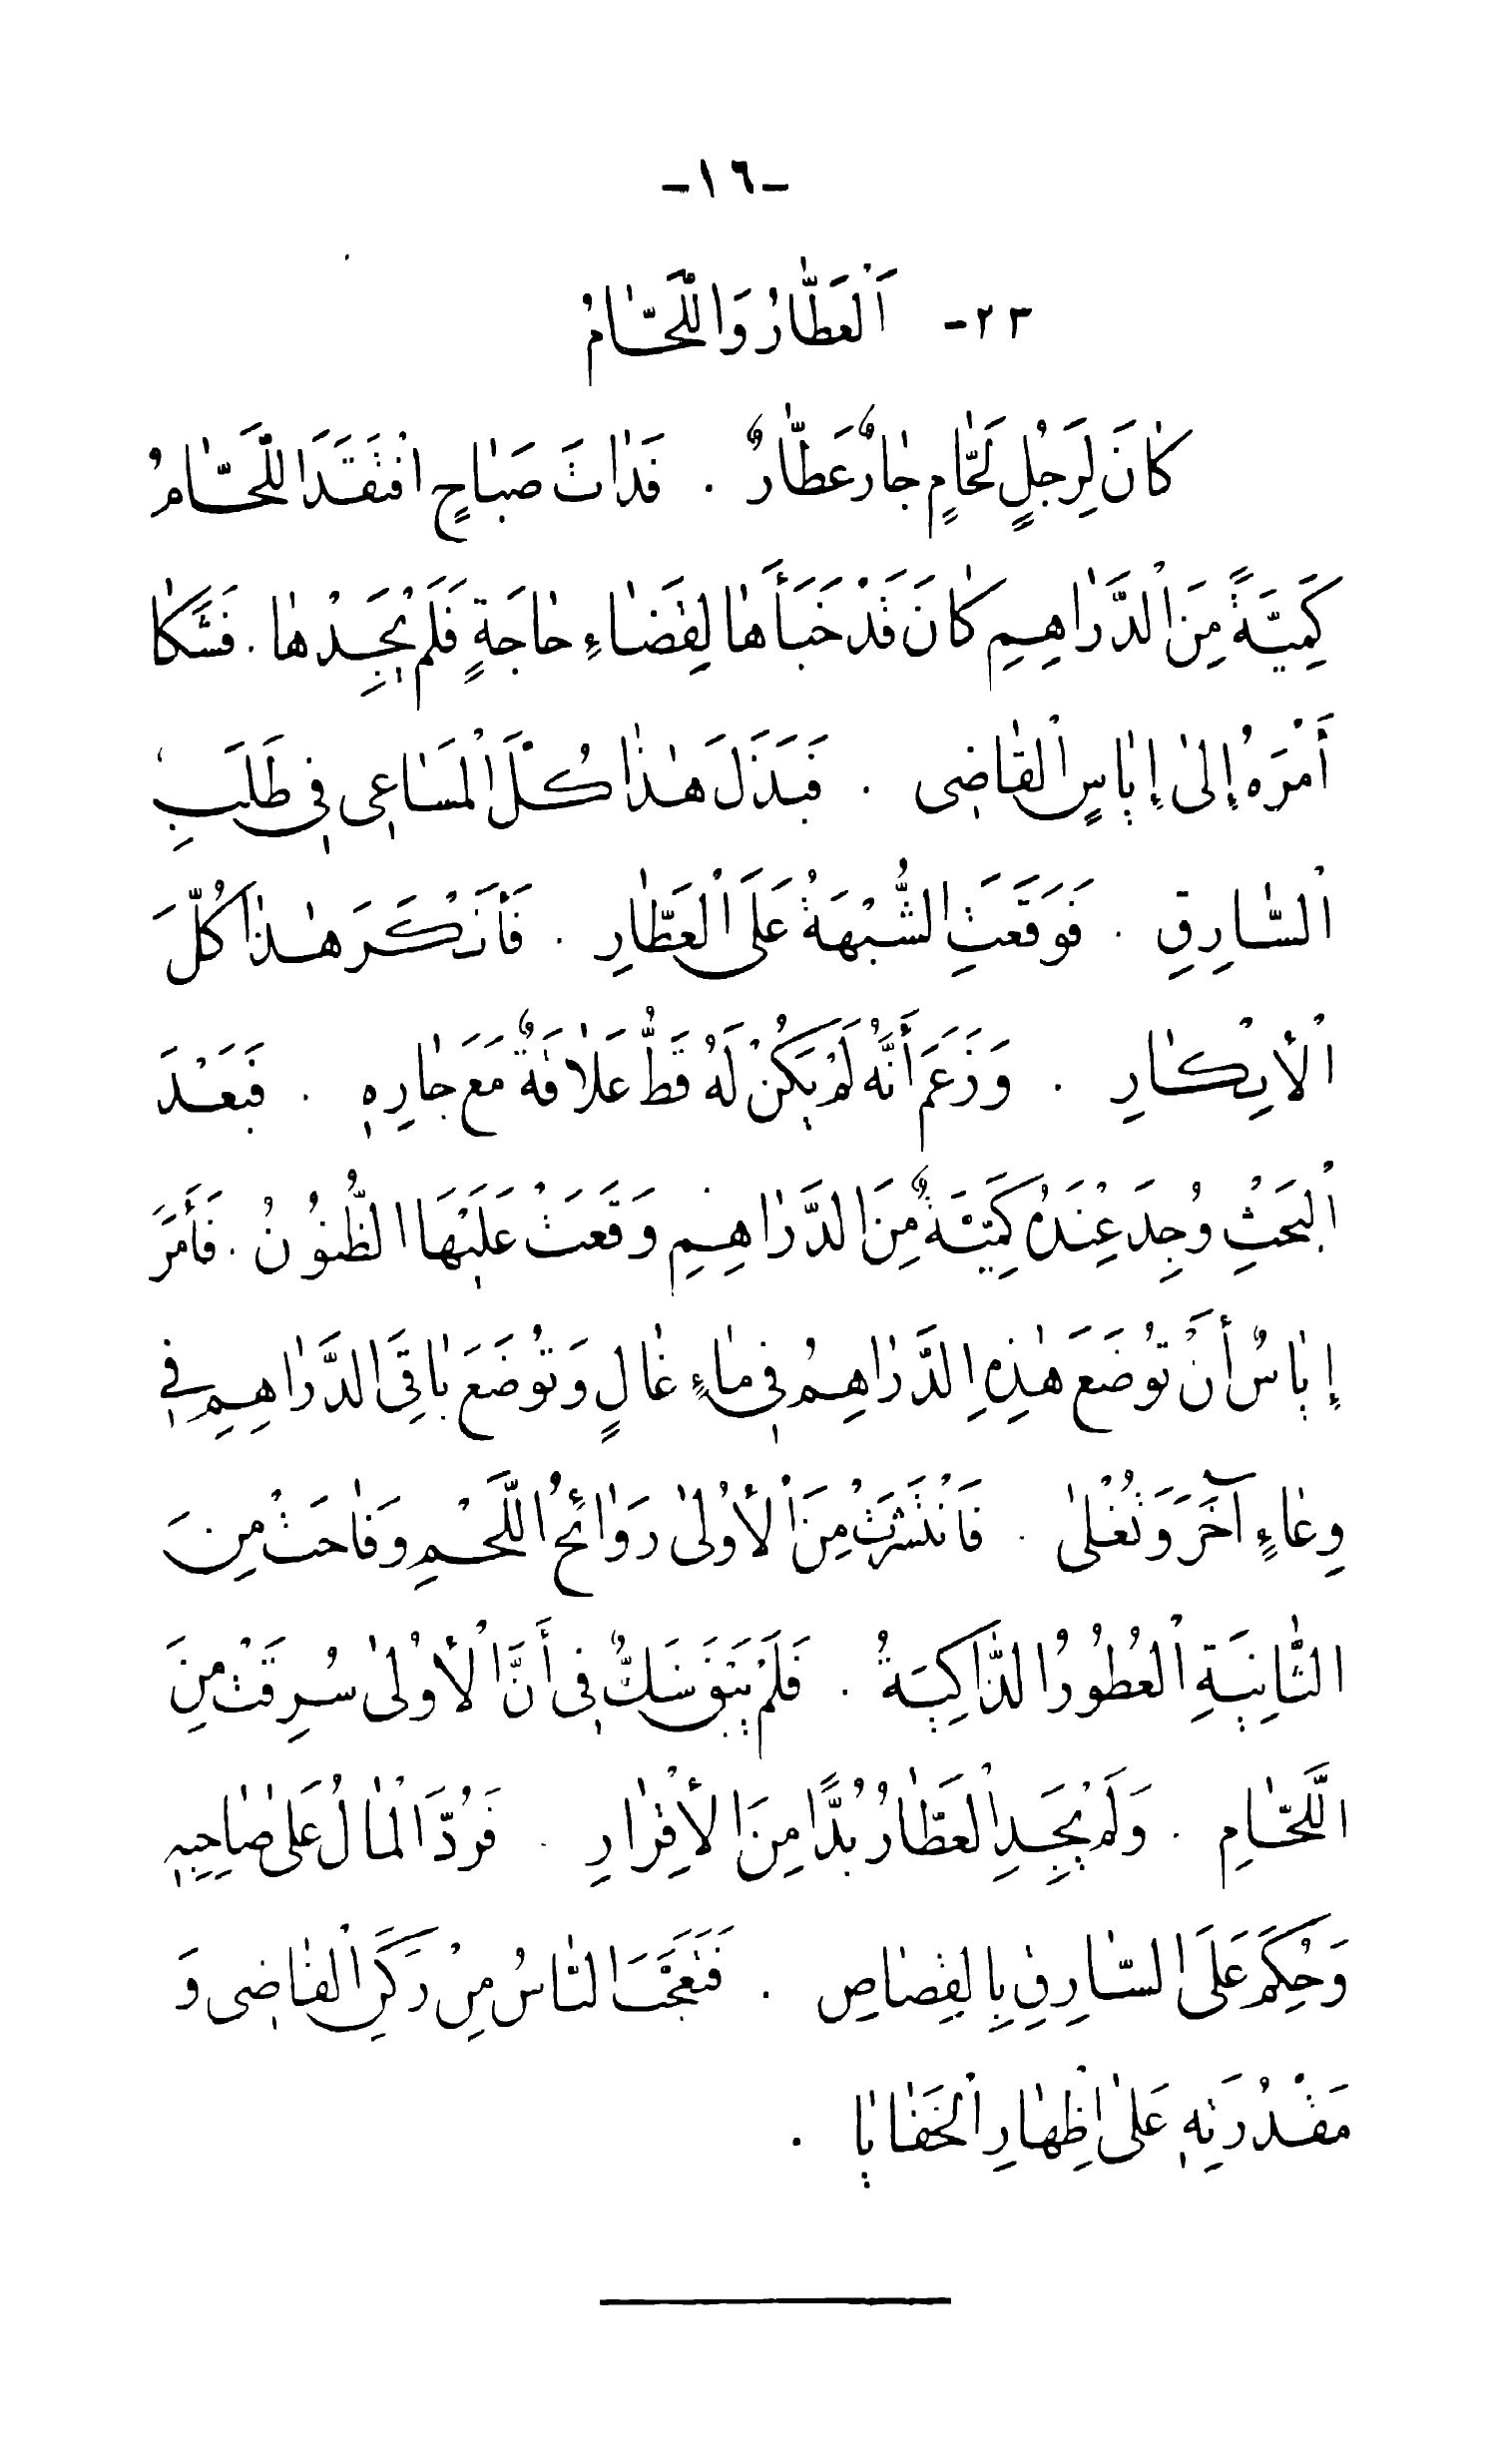 -١٦-
٢٣- اَلْعَطّٰارُ وَاللَّحّٰامُ
كٰانَ لِرَجُلٍ لَحّٰامٍ جٰارٌ عَطّٰارٌ . فَذٰاتَ صَبٰاحٍ افْتَقَدَ اللَّحّٰامُ
كَمِيَّةً مِنَ الْدَّرٰاهِمِ كٰانَ قَدْ خَبَأَهٰا لِقَضٰاءِ حٰاجَةٍ فَلَمْ يَجِدْهٰا . فَشَكٰا
أَمْرَهُ إِلىٰ إِيٰاسٍ الْقٰاضِى . فَبَذَلَ هٰذٰا كُلَّ الْمَسٰاعِى فِى طَلَبِ
الْسّٰارِقِ . فَوَقَعَتِ الشُّبْهَةُ عَلَى الْعَطّٰارِ . فَأَنْكَرَ هٰذٰا كُلَّ
الْأِنْكٰارِ . وَزَعَمَ أَنَّهُ لَمْ يَكُنْ لَهُ قَطُّ عَلاٰقَةٌ مَعَ جٰارِهِ . فَبَعْدَ
الْبَحْثِ وُجِدَ عِنْدَهُ كَمِيَّةٌ مِنَ الدَّرٰاهِمِ وَقَعَتْ عَلَيْهَا الظُّنُوْنُ . فَأَمَرَ
إِيٰاسٌ أَنْ تُوضَعَ هٰذِهِ الدَّرٰاهِمُ فِى مٰاءٍ غٰالٍ وَتُوْضَعَ بٰاقِىَ الدَّرٰاهِمِ فِى
وِعٰاءٍ آخَرَ وَتُغْلىٰ . فَانْتَشَرَتْ مِنَ الْأُوْلىٰ رَوٰائِحُ اللَّحْمِ وَفٰاحَتْ مِنَ
الثّٰانِيَةِ الْعُطُورُ الذّٰاكِيَةُ . فَلَمْ يَبْقَ شَكٌّ فِى أَنَّ الْأُوْلىٰ سُرِقَتْ مِنَ
اللَّحّٰامِ . وَلَمْ يَجِدِ الْعَطّٰارُ بُدًّا مِنَ الْأِقْرٰارِ . فَرُدَّ الْمٰالُ عَلىٰ صٰاحِبِهِ
وَحُكِمَ عَلَى السّٰارِقِ بِالقِصٰاصِ . فَتَعَجَّبَ النّٰاسُ مِنْ زَكَنِ الْقٰاضِى وَ
مَقْدُرَتِهِ عَلىٰ اِظْهٰارِ الْخَفٰايٰا .